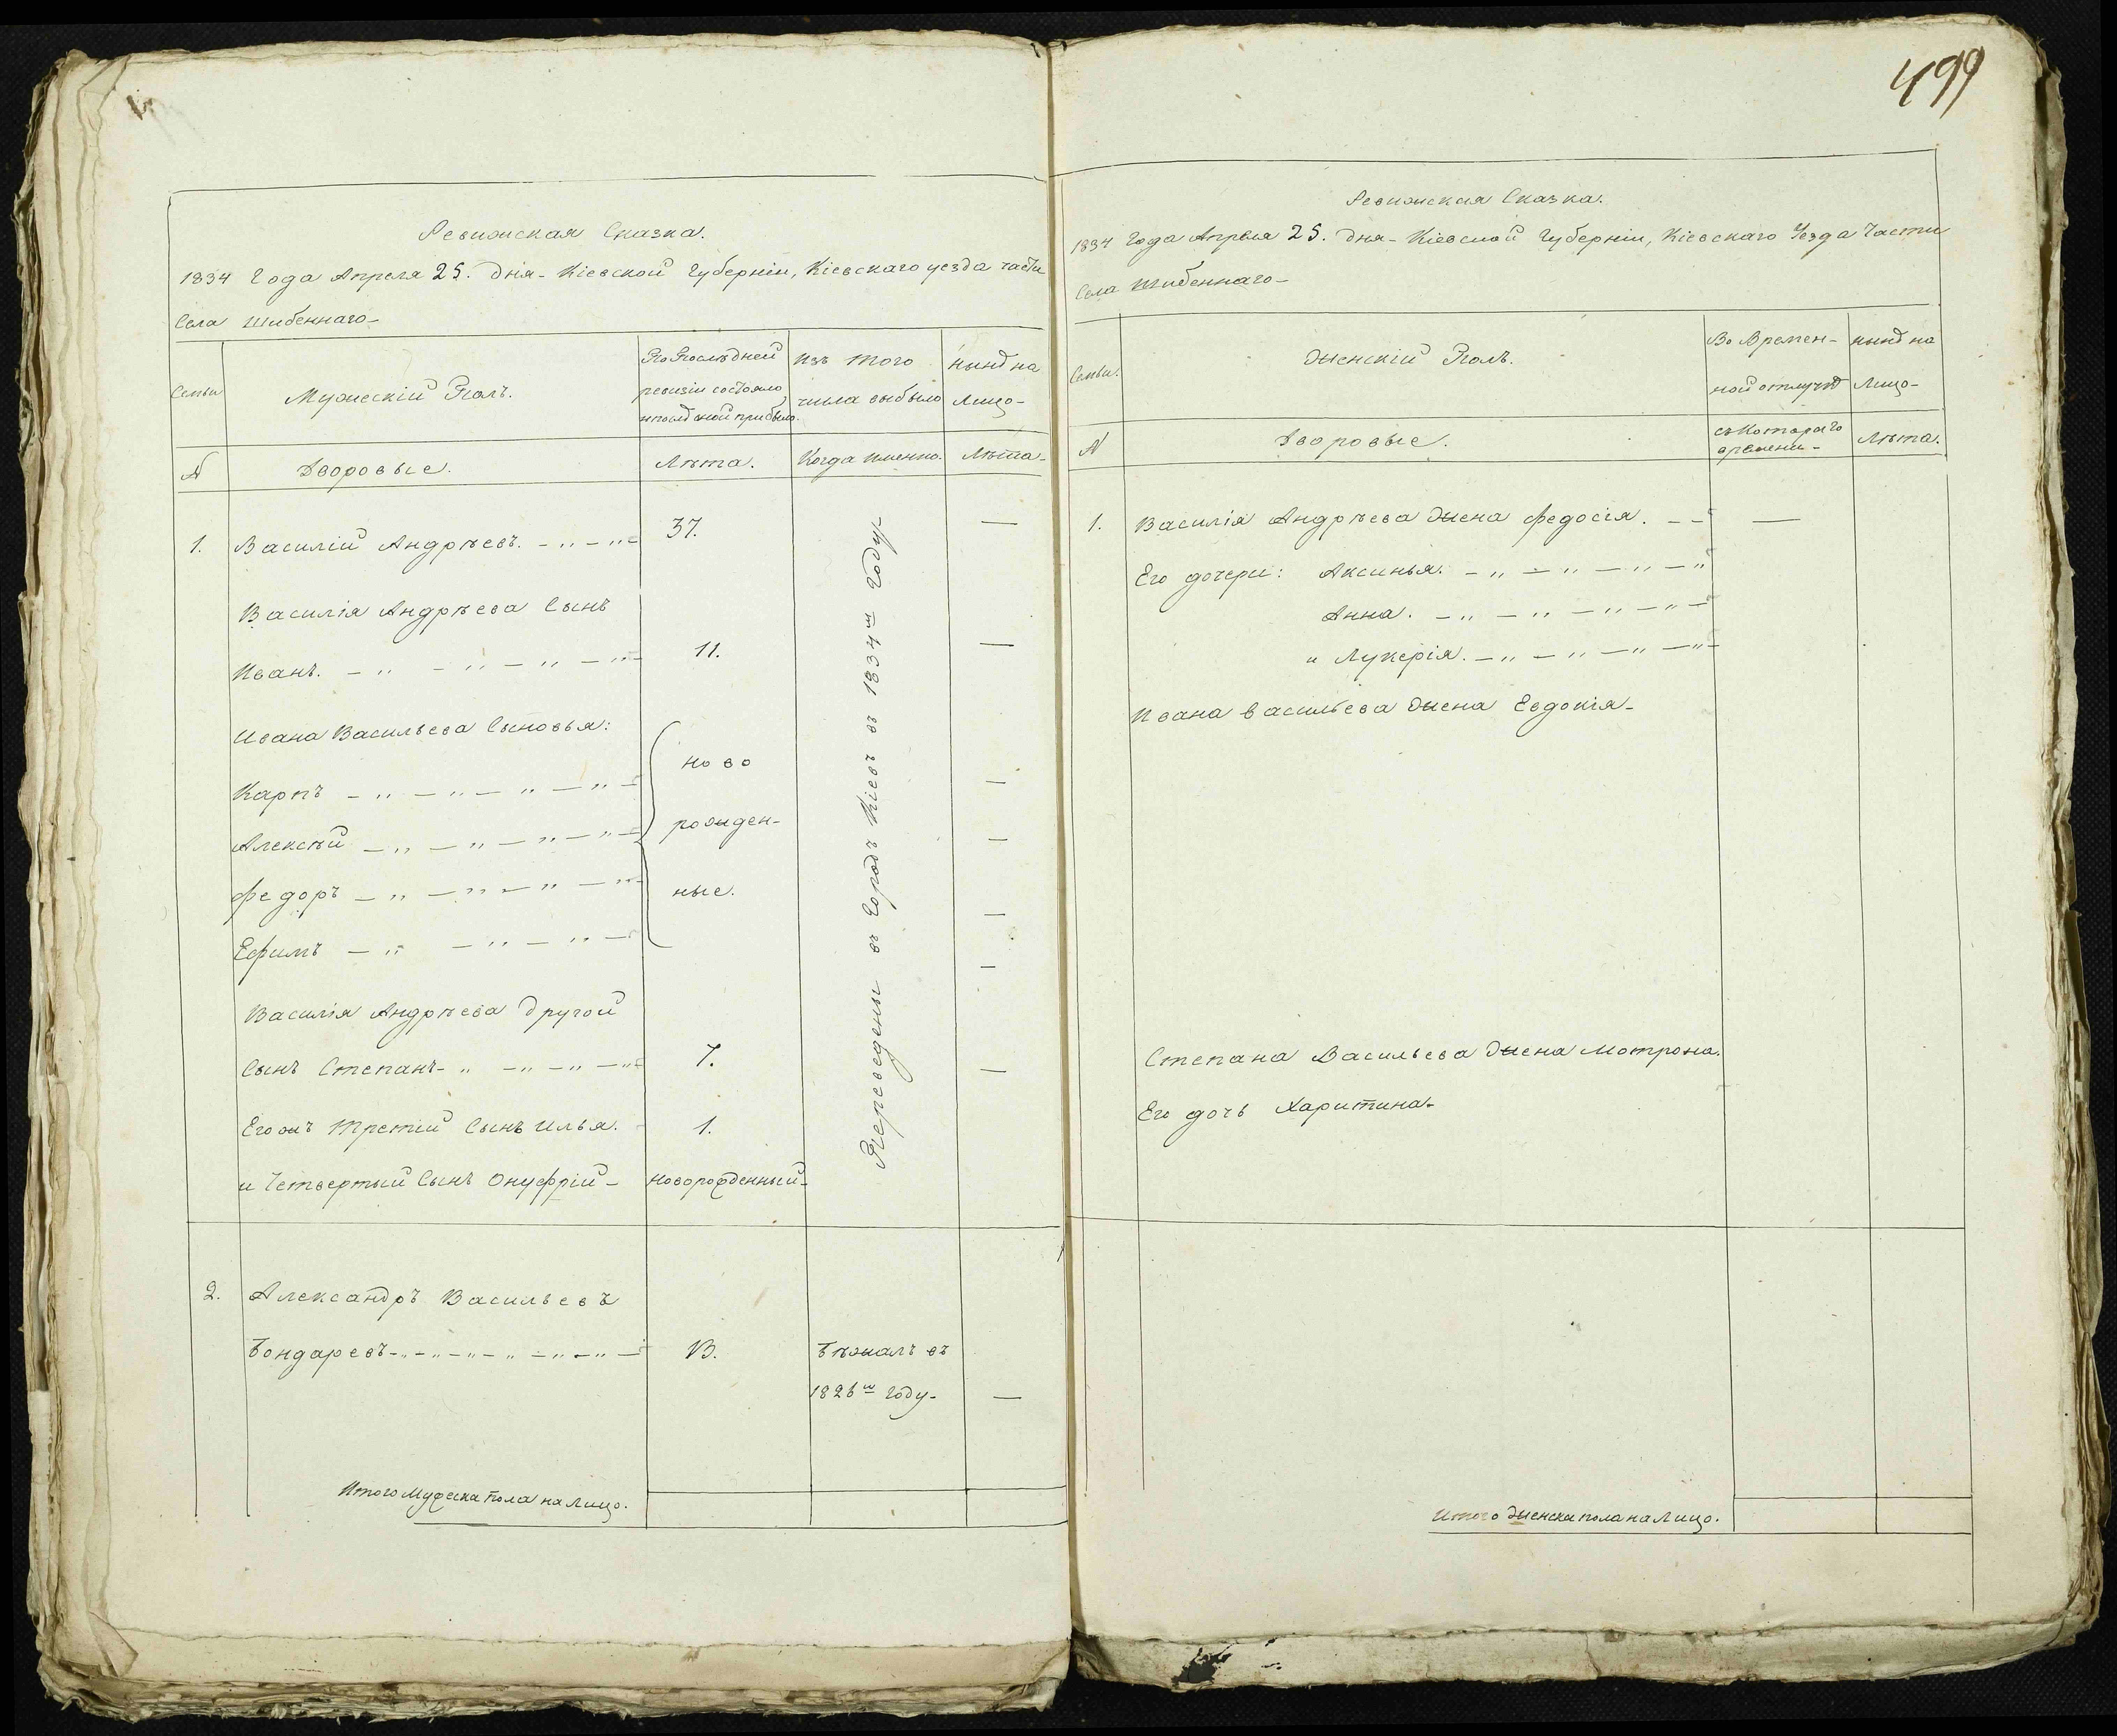 Ревижская Сказка.
1834 Года Апреля 25. дня - Кіевской Губерніи, Кіевскаго уезда части
Села Шибеннаго -
Семьи
Мужескій Полъ.
По Последней
ревизіи состояло
и после оной прибыло.
Изъ того
числа выбыло
Нынѣ на
Лицо -
N
Дворовые.
Лѣта.
Когда именно.
Лѣта -
1. Василій Андрѣевъ. - „ - „ 37. —
Василія Андрѣева Сынъ
Иванъ. - „ - „ - „ - „ 11. —
Ивана Васильева Сыновья:
Карпъ - „ - „ - „ - „ ново —
Алексѣй - „ - „ - „ - „ рожден- —
Федоръ - „ - „ - „ - „ ные. —
Ефимъ - „ - „ - „ - —
Василія Андрѣева другой
Сынъ Степанъ - „ - „ - „ - „ 7. —
Его жъ Третій Сынъ Илья. 1.
и Четвертый Сынъ Онуфрій - Новорожденный -
Переведены въ Городъ Кіевъ въ 1834м Году -
2. Александръ Васильевъ
Бондаревъ - „ - „ - „ - „ - „ - „ - В. Бѣжалъ въ
1826м Году - —
Итого Мужеска пола на Лицо.
499
Ревижская Сказка.
1834 Года Апрѣля 25. дня - Кіевской Губерніи, Кіевскаго Уезда Части
Села Шибеннаго -
Семьи.
Женскій Полъ.
Во Времен-
ной отлучкѣ
Нынѣ на
Лицо -
N
Дворовые.
съ Котораго
времени -
Лѣта.
1. Василія Андрѣева Жена Федосія. - - —
Его дочери: Аксинья. - „ - „ - „ - „
Анна. - „ - „ - „ - „ -
и Лукерія. - „ - „ - „ - „ -
Ивана Васильева Жена Евдокія -
Степана Васильева Жена Мотрона.
Его дочь Харитина -
Итого Женска пола на Лицо.